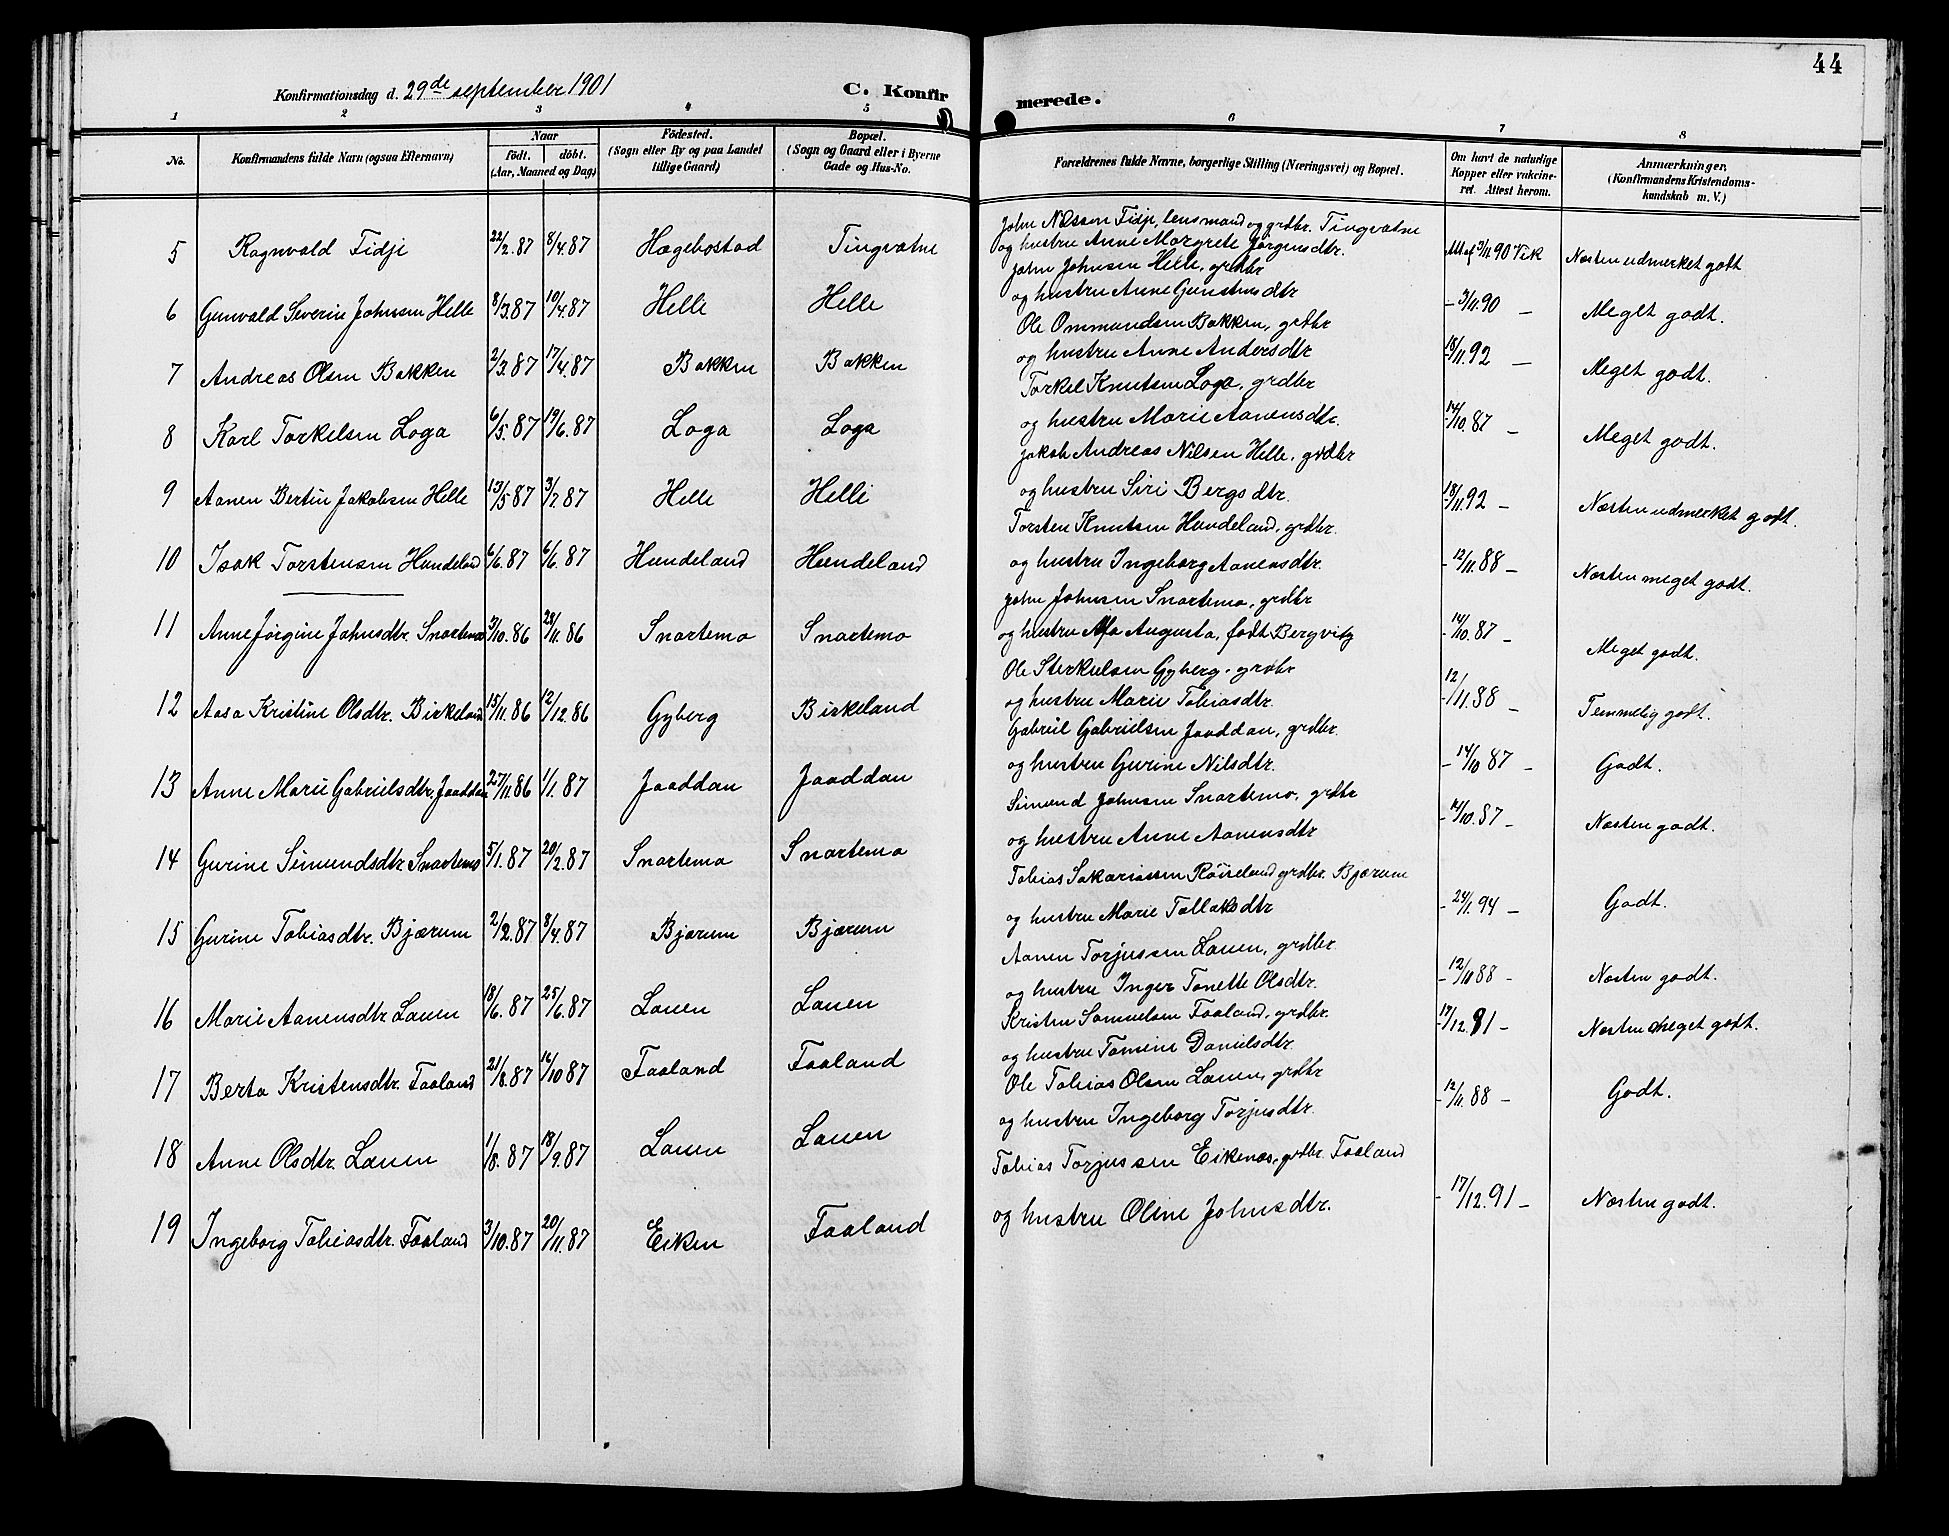 44
Konfirmationsdag d. 29de september 1901
C. Konfirmerede.
1 2 3 4 5 6 7 8
No.
Konfirmandens fulde Navn (ogsaa Efternavn)
Naar
födt. döbt.
(Aar, Maaned og Dag)
Födested.
(Sogn eller By og paa Landet tillige Gaard)
Bopæl.
(Sogn og Gaard eller i Byerne Gade og Hus-No.
Forældrenes fulde Navne, borgerlige Stilling (Næringsvei) og Bopæl.
Om havt de naturlige Kopper eller vakcineret. Attest herom.
Anmærkninger,
(Konfirmandens Kristendomskundskab m. V.)
5 Ragnvald Fidje 22/2.87 8/4.87 Hægebostad Tingvatne
John Nilsson Fidje, lensmand og grdbr. Tingvatne
og hustru Anne Margrete Jörgensdtr.
3/11 90 Vik Næsten udmerket godt
6 Gunvald Severin Johnsen Helle 8/3.87 10/4.87 Helle Helle
John Johnsen Helle, grdbr
og hustru Anne Gunstensdtr
- 3/11.90 - Meget godt.
7 Andreas Olsen Bakken 2/3.87 17/4.87 Bakken Bakken
Ole Ommundsen Bakken, grdbr
og hustru Anne Andersdtr
18/11.92 - Meget godt.
8 Karl Torkelsen Loga 6/5.87 19/6.87 Loga Loga
Torkel Knutsen Loga, grdbr
og hustru Marie Aanensdtr.
14/10.87 - Meget godt.
9 Aanen Bertin Jakobsen Helle 13/5 87 3/7.87 Helle Helle
Jakob Andreas Nilsen Helle, grdbr
og hustru Siri Bergsdtr.
18/11.92 - Næsten udmerket godt.
10 Isak Torstensen Hundeland 6/6.87 6/6.87 Hundeland Hundeland
Torsten Knutsen Hundeland, grdbr.
og hustru Ingeborg Aanensdtr.
- 12/11.88 - Næsten meget godt.
11 Anne Jörgine Johnsdtr. Snartemo 3/10.86 28/11.86 Snartemo Snartemo
John Johnsen Snartemo, grdbr
og hustru Augusta, födt Bergvitz
- 14/10.87 - Meget godt.
12 Aasa Kristine Olsdtr. Birkeland 15/11.86 12/12.86 Gyberg Birkeland
Ole Sterkelsen Gyberg, grdbr
og hustru Marie Tobiasdtr.
12/11.88 - Temmelig godt.
13 Anne Marie Gabrielsdtr. Jaaddan 27/11.86 1/1.87 Jaaddan Jaaddan
Gabriel Gabrielsen Jaaddan, grdbr.
og hustru Gurine Nilsdtr.
- 14/10 87 - Godt.
14 Gurine Simundsdtr. Snartemo 5/1.87 20/2.87 Snartemo Snartemo
Simund Johnsen Snartemo, grdbr
og hustru Anne Aanensdtr
- 14/10.87 - Næsten godt.
15 Gurine Tobiasdtr. Bjærum 2/2.87 8/4.87 Bjærum Bjærum
Tobias Sakariassen Röiseland grdbr. Bjærum
og hustru Marie Tollaksdtr
- 24/1.94 - Godt.
16 Marie Aanensdtr Lauen 18/6.87 25/6.87 Lauen Lauen
Aanen Torjussen Lauen, grdbr.
og hustru Inger Tonette Olsdtr.
- 12/11 88 - Næsten godt.
17 Berta Kristensdtr. Faaland 21/8.87 16/10 87 Faaland Faaland
Kristen Samuelsen Faaland, grdbr.
og hustru Tomine Danielsdtr.
17/12.91 - Næsten meget godt.
18 Anne Olsdtr. Lauen 1/8.87 18/9.87 Lauen Lauen
Ole Tobias Olsen Lauen, grdbr
og hustru Ingeborg Torjusdtr.
- 12/11.88 - Godt.
19 Ingeborg Tobiasdtr. Faaland 3/10.87 20/11.87 Eiken Faaland
Tobias Torjussen Eikenæs, grdbr. Faaland
og hustru Oline Johnsdtr.
- 17/12.91 - Næsten godt.